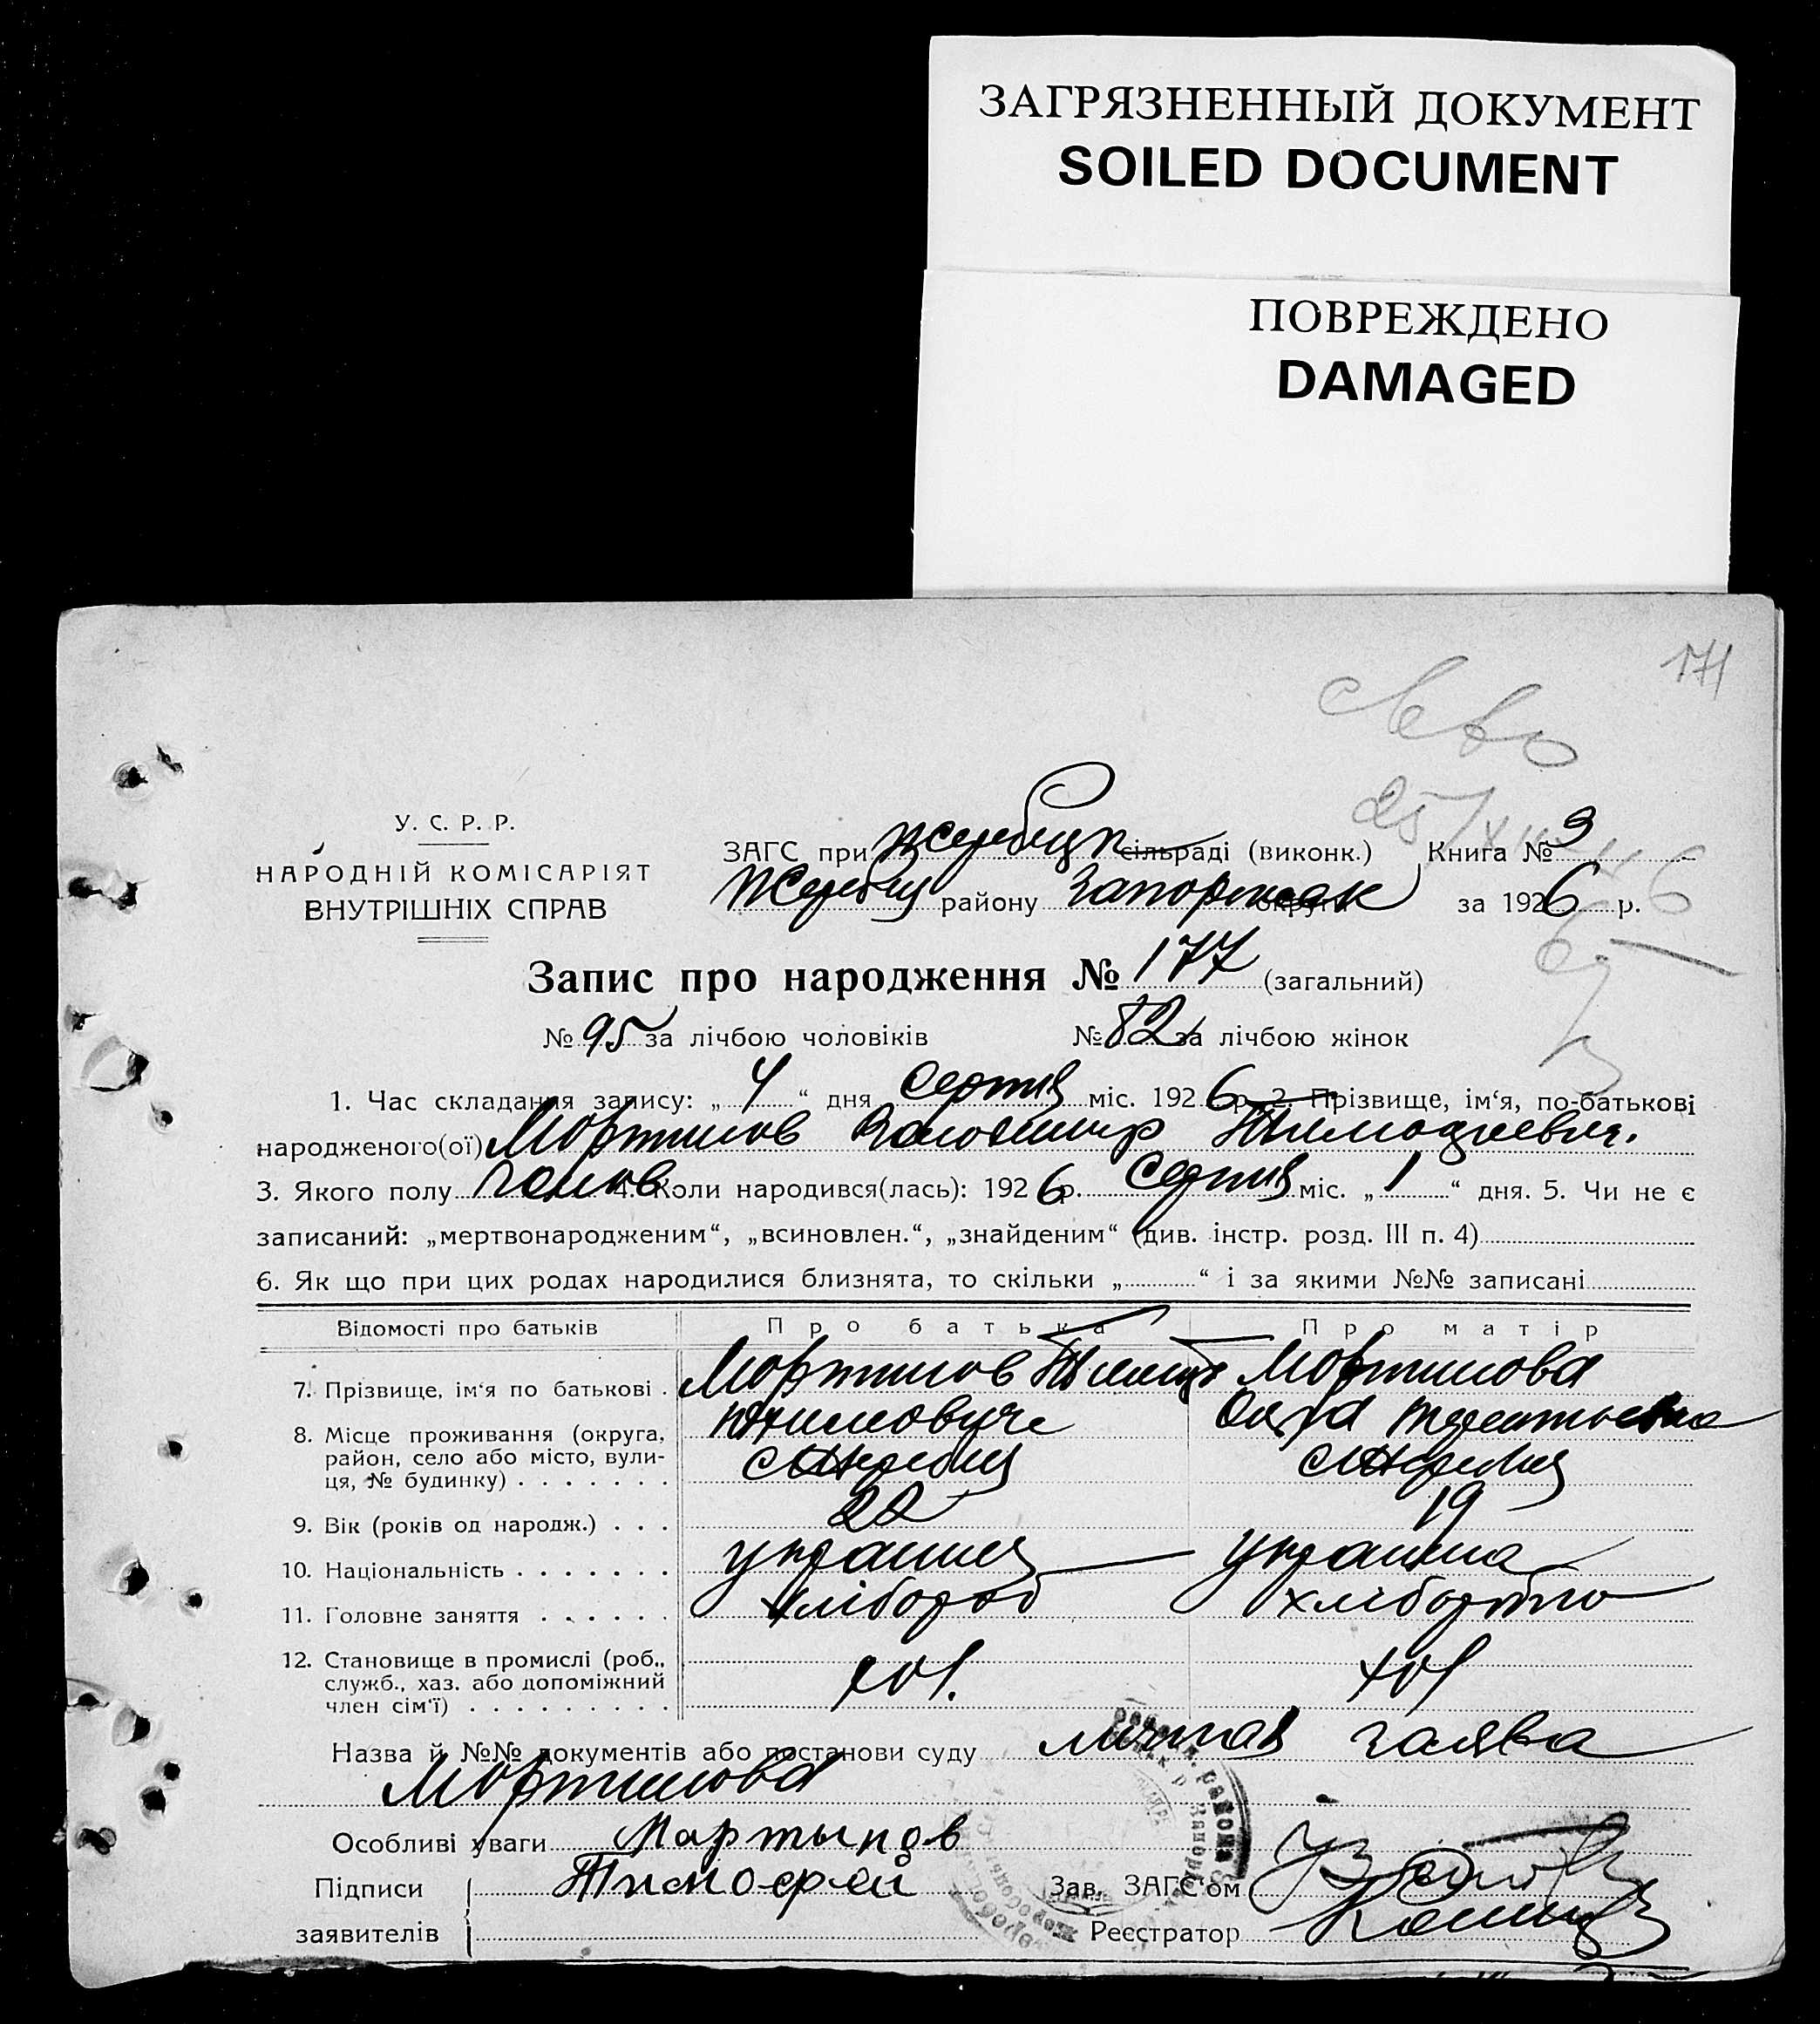 ЗАГРЯЗНЕННЫЙ ДОКУМЕНТ
SOILED DOCUMENT
ПОВРЕЖДЕНО
DAMAGED
171
У. С. Р. Р.
НАРОДНІЙ КОМІСАРІЯТ
ВНУТРІШНІХ СПРАВ
ЗАГС при Жеребецк сільраді (виконк.) Книга № 3
Жеребец району Запорожск округи за 1926 р.
Запис про народження № 177 (загальний)
№ 95 за лічбою чоловіків № 82 за лічбою жінок
1. Час складання запису: „ 4 “ дня серпня міс. 1926 р. 2. Прізвище, ім‘я, по-батькові
народженого(ої) Мортинов
3. Якого полу чолов 4. Коли народився(лась): 1926 р. серпня міс. „ 1 “ дня. 5. Чи не є
записаний: „мертвонародженим“, „всиновлен.“, „знайденим“ (див. інстр. розд. III п. 4)
6. Як що при цих родах народилися близнята, то скільки „ “ і за якими №№ записані
Відомості про батьків Про батька Про матір
7. Прізвище, ім‘я по батькові . Мортинов Мортинова
8. Місце проживання (округа, район, село або місто, вулиця, № будинку) . . . . . . . с Жеребец с Жеребец
9. Вік (років од народж.) . . . 22 19
10. Національність . . . . . . . украинец украинка
11. Головне заняття . . . . . . хлібороб
12. Становище в промислі (роб., служб., хаз. або допоміжний член сім‘ї) . . . . . . . . .
Назва й №№ документів або постанови суду личная заява
Мортинова
Особливі уваги Мартынов
Підписи Тимофей Зав. ЗАГС‘ом
заявителів Реєстратор